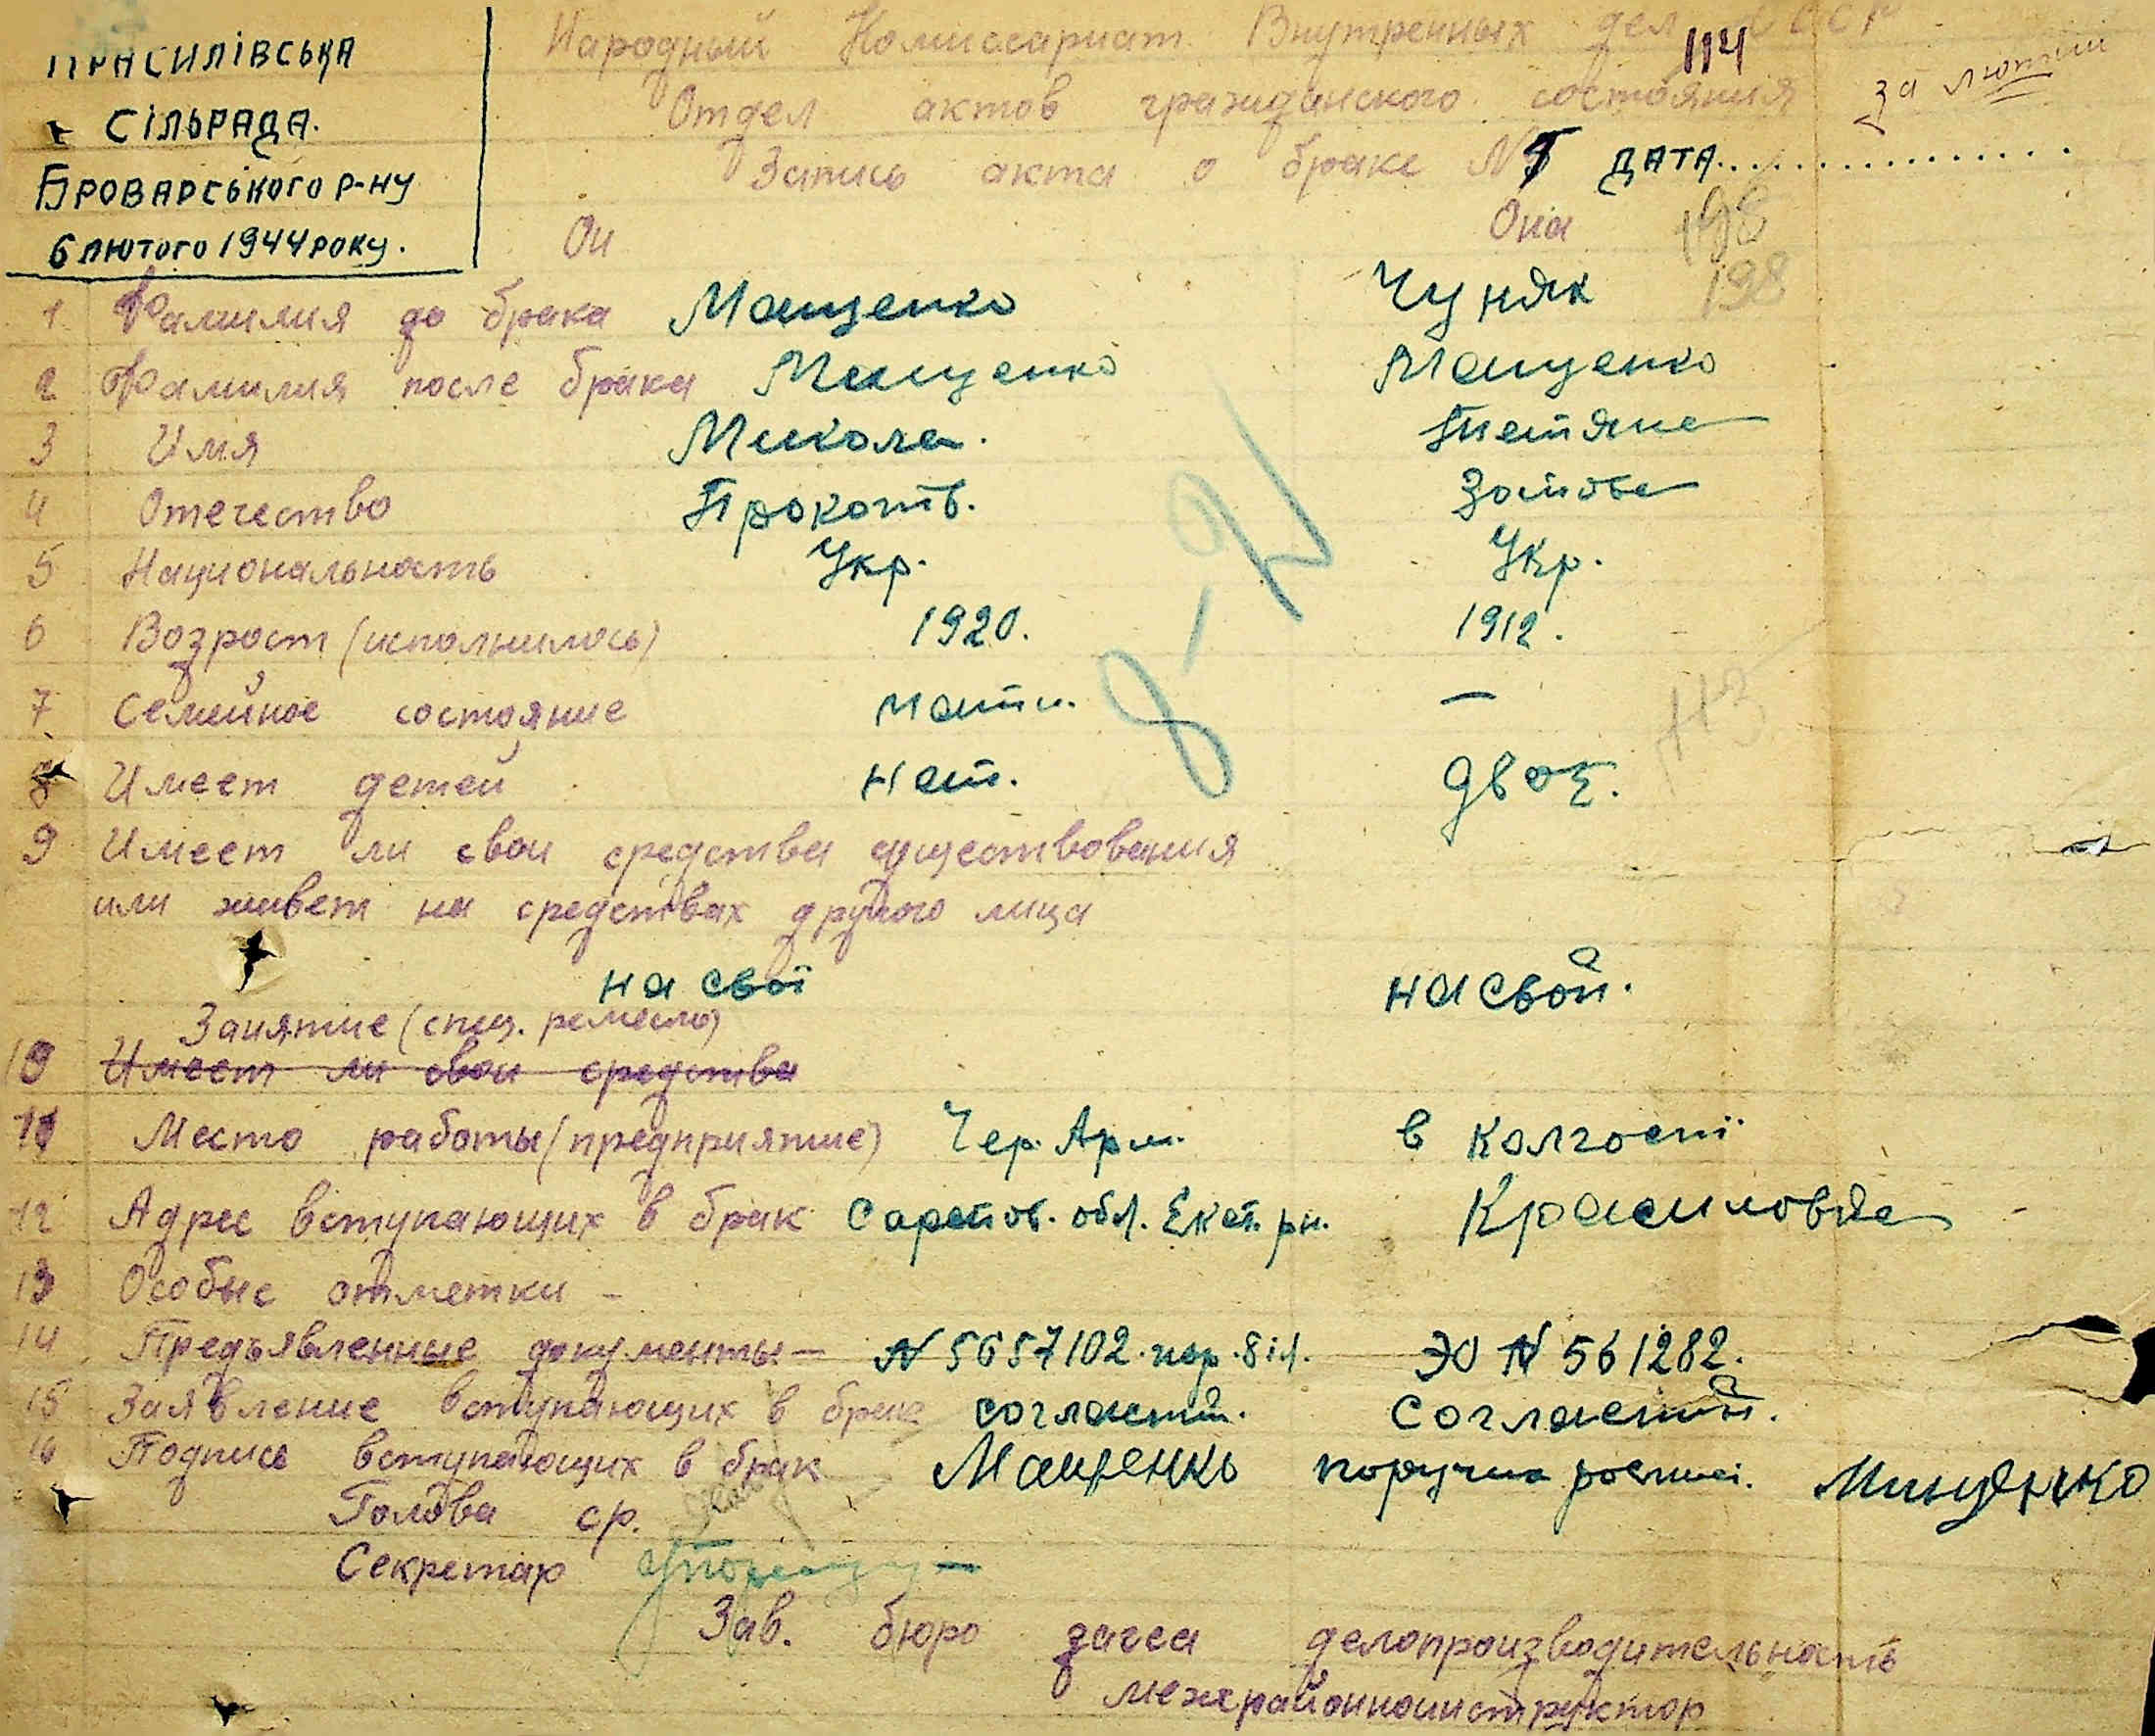 КРАСИЛІВСЬКА
СІЛЬРАДА.
БРОВАРСЬКОГО Р-НУ
6 ЛЮТОГО 1944 РОКУ.
Народный Комиссариат Внутренных дел СССР
114
Отдел актов гражданского состояния
за лютий
Запись акта о браке № ДАТА...............
Он Она 198
1 Фамилия до брака Мащенко Чуняк 198
2 Фамилия после брака Мащенко Мащенко
3 Имя Микола. Тетяна
4 Отечество Прокотв.
5 Национальность Укр. Укр.
6 Возраст (исполнилось) 1920. 1912.
7 Семейное состояние —
113
8 Имеет детей нет. двоє.
9 Имеет ли свои средства существования
или живет на средствах другого лица
на свої на свой.
Занятие (спец. ремесло)
10 Имеет ли свои средства
11 Место работы (предприятие) Чер. Арм. в колгоспі
12 Адрес вступающих в брак Саратов. обл. Екат. рн. Красиловка
13 Особые отметки –
14 Предъявленные документы – № 5657102. ЭО № 561282.
15 Заявление вступающих в брак согласт.
16 Подпись вступающих в брак Мащенко Мищенко
Голова ср.
Секретар
Зав. бюро загса делопроизводительность
межрайонноинструктор